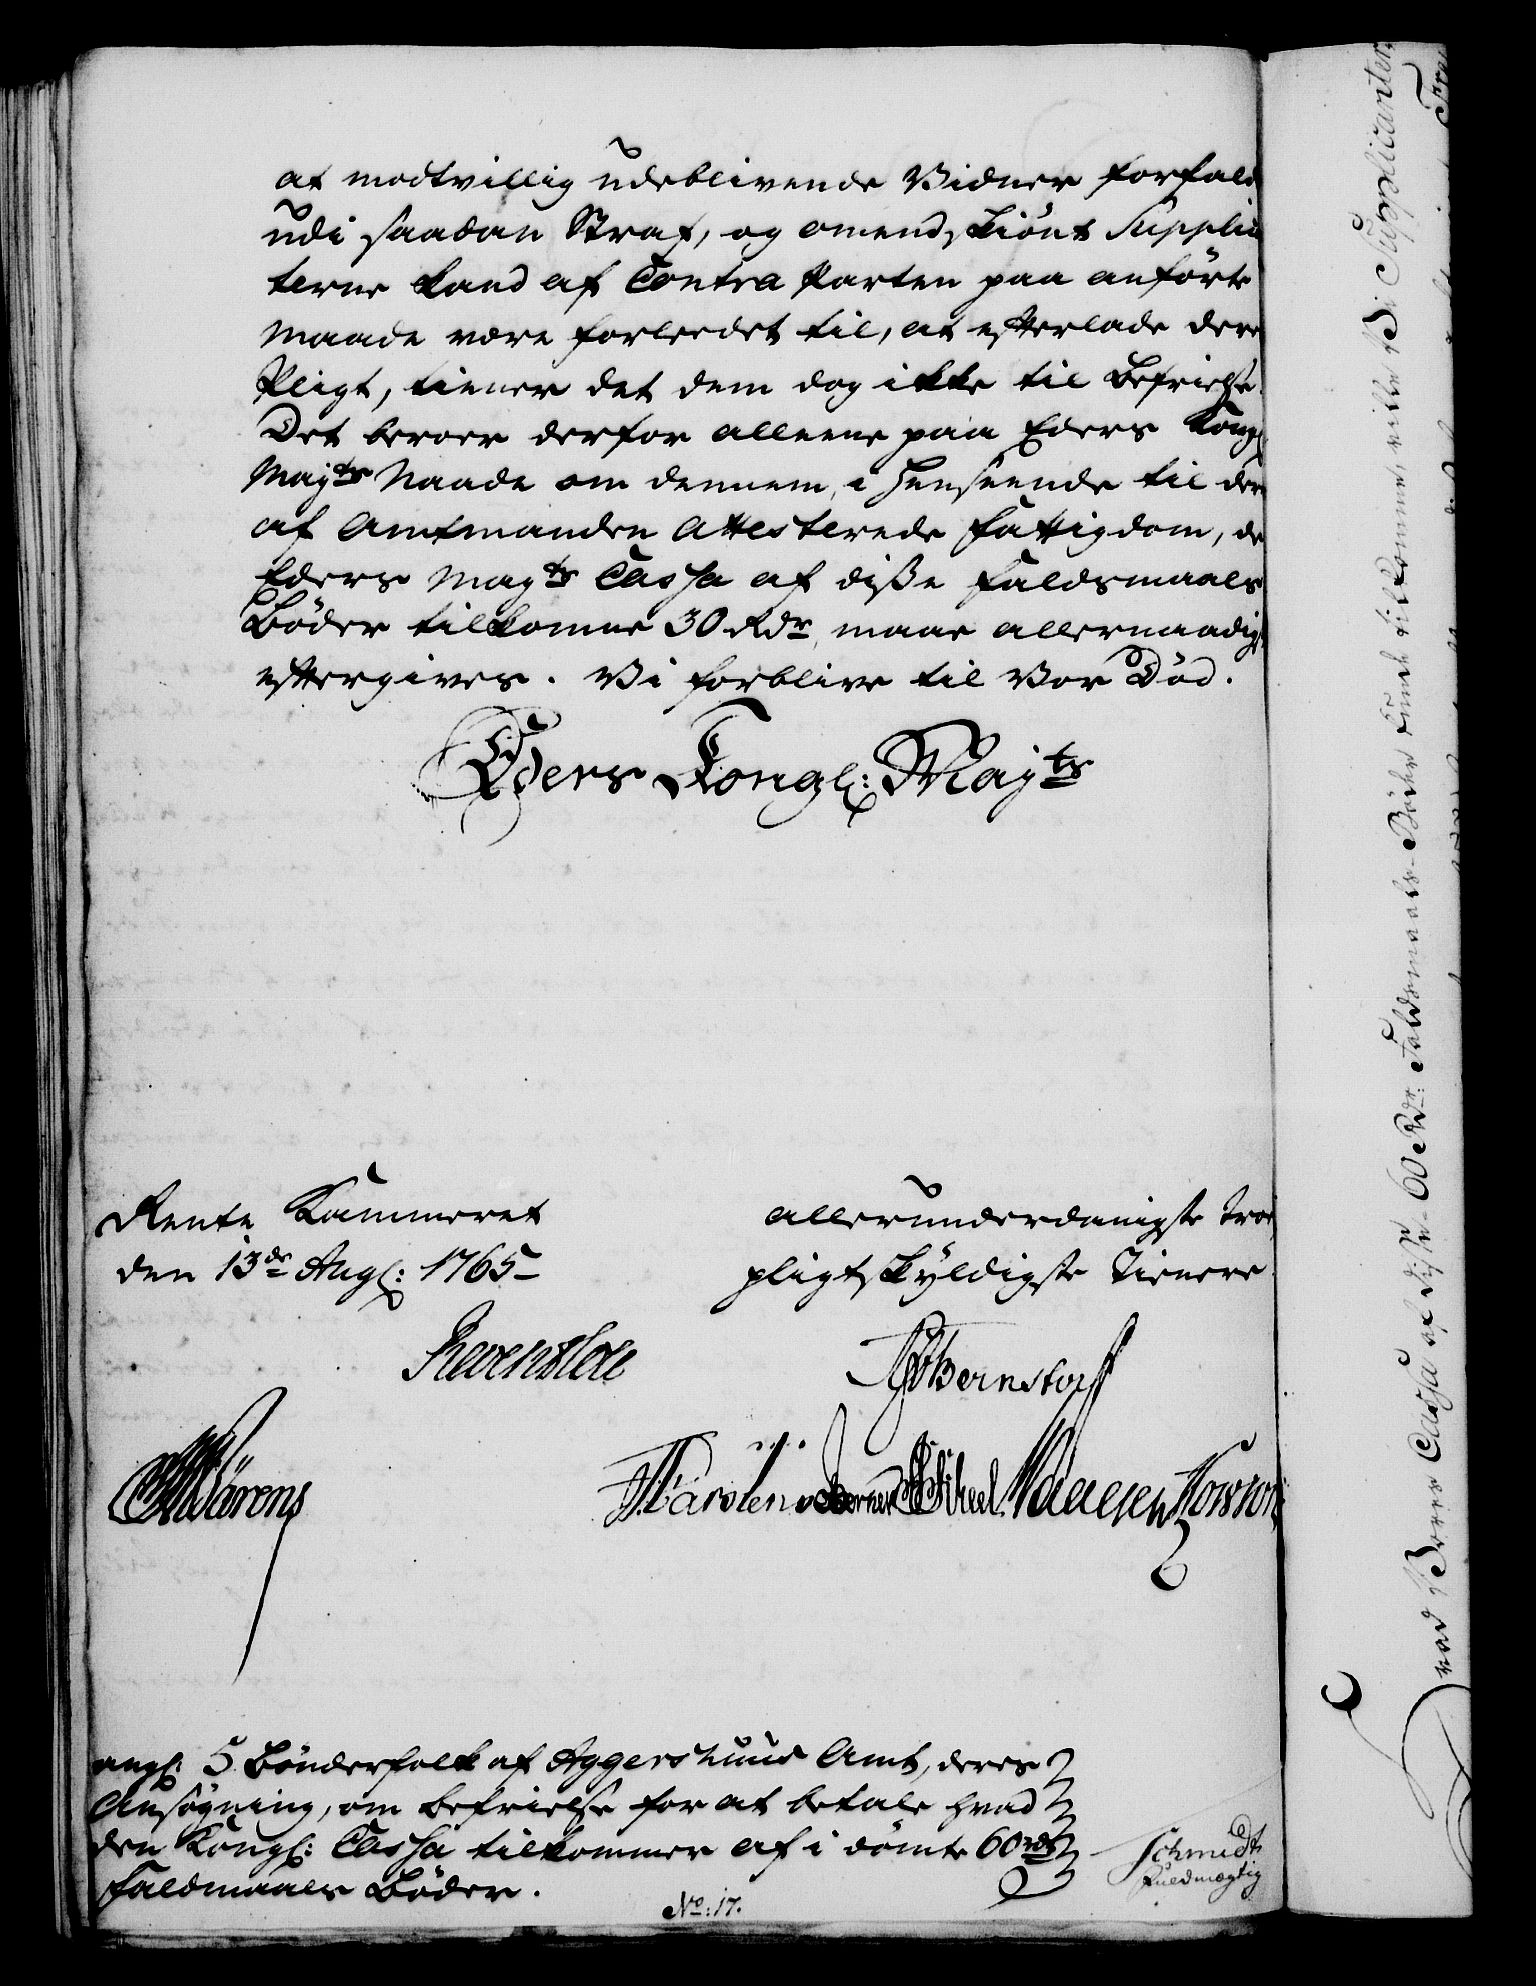 at modtvillig udeblivende Vidner forfald
udi saadan Straf, og omendskiönt Supplic
terne kand af Contra Parten paa anförte
Maade være forleedet til, at efterlade dere
Pligt, tiener det dem dog ikke til Befrielse.
Det beroer derfor alleene paa Eders Kongl
Mayts Naade om dennem, i Henseende til der
af Amtmanden Attesterede Fattigdom, de
Eders Mayts Cassa af diße Faldsmaals
Böder tilkomne 30 Rdr, maae allernaadigst
eftergives. Vi forblive til Vor Död.
Eders Kongl: Mayts
Rente Kammeret
den 13de Augl: 1765
allerunderdanigste troe
pligtskyldigste Tienere
Reventlou
Bernstorff
Wärens
Karstens
Nowson
angl: 5 Bönderfolk af Aggershuus Amt, deres
Ansögning, om befrielse for at betale hvad
den Kongl: Cassa tilkommer af idömte 60 rdr
Faldmaals Böder.
Schmidt
Fuldmægtig
No: 17.
hvad Deres Cassa af disse 60 Rdr: Faldsmaals-Böder kund tilkomme, eller Vi Supplicanter